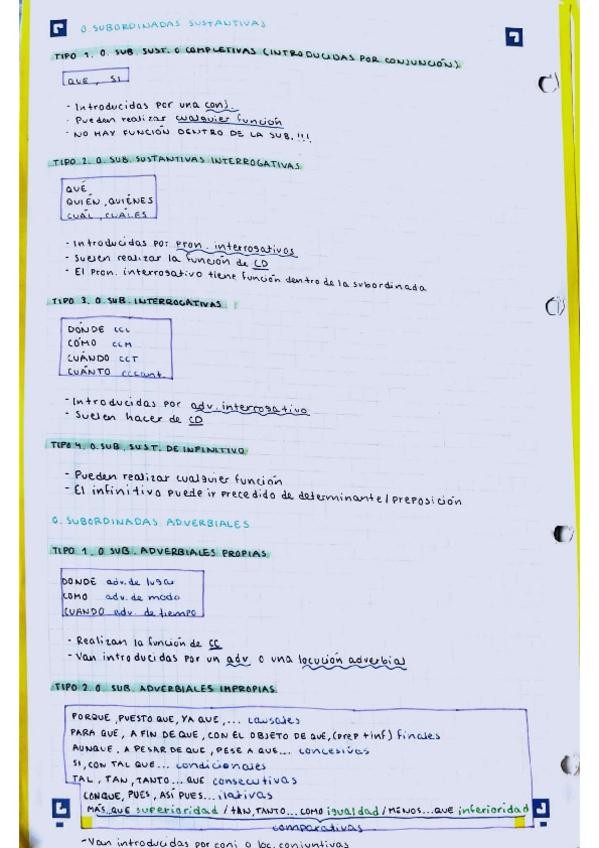 O SUBORDINADAS SUSTANTIVAS
TIPO 1. O. SUB. SUST. O COMPLETIVAS (INTRODUCIDAS POR CONJUNCIÓN)
QUE, SI
- Introducidas por una conj.
- Pueden realizar cualquier función
- NO HAY FUNCIÓN DENTRO DE LA SUB. !!!
TIPO 2. O. SUB. SUSTANTIVAS INTERROGATIVAS
QUÉ
QUIÉN, QUIÉNES
CUÁL, CUÁLES
- Introducidas por pron. interrogativos
- Suelen realizar la función de CD
- El Pron. interrogativo tiene función dentro de la subordinada
TIPO 3. O SUB. INTERROGATIVAS
DÓNDE CCL
CÓMO CCM
CUÁNDO CCT
CUÁNTO CCCant.
- Introducidas por adv. interrogativo
- Suelen hacer de CD
TIPO 4. O. SUB. SUST. DE INFINITIVO
- Pueden realizar cualquier función
- El infinitivo puede ir precedido de determinante / preposición
O. SUBORDINADAS ADVERBIALES
TIPO 1. O SUB. ADVERBIALES PROPIAS
DONDE adv. de lugar
COMO adv. de modo
CUANDO adv. de tiempo
- Realizan la función de CC
- Van introducidas por un adv o una locución adverbial
TIPO 2. O SUB. ADVERBIALES IMPROPIAS
PORQUE, PUESTO QUE, YA QUE, ... causales
PARA QUE, A FIN DE QUE, CON EL OBJETO DE QUE, (prep + inf) finales
AUNQUE, A PESAR DE QUE, PESE A QUE... concesivas
SI, CON TAL QUE ... condicionales
TAL, TAN, TANTO... QUE consecutivas
CONQUE, PUES, ASÍ PUES... ilativas
MÁS...QUE superioridad / TAN, TANTO... COMO igualdad / MENOS...QUE inferioridad
comparativas
- Van introducidas por conj o loc. conjuntivas